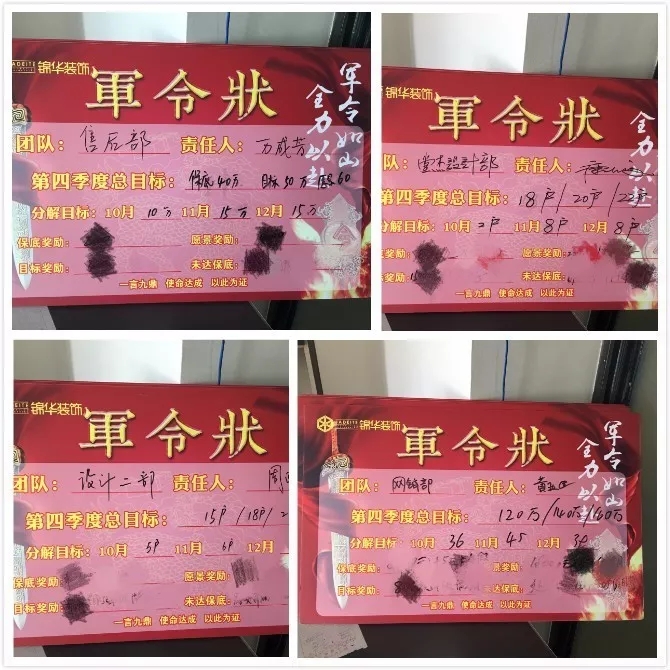 锦华装饰
軍令狀
军令如山
全力以赴
团队：售后部 责任人：万成芳
第四季度总目标：保底40万 目标50万 60
分解目标：10月 10万 11月 15万 12月 15万
保底奖励： 愿景奖励：
目标奖励： 未达保底：
一言九鼎 使命达成 以此为证
锦华装饰
軍令狀
军令如山
全力以赴
团队： 设计部 责任人：
第四季度总目标：18户/20户/22户
分解目标：10月 2户 11月 8户 12月 8户
奖励： 愿景奖励：
目标奖励： 未达保底：
一言九鼎 使命达成 以此为证
锦华装饰
軍令狀
团队：设计二部 责任人：周
第四季度总目标：15户/18户/2
分解目标：10月 5户 11月 6户 12月
保底奖励： 愿景奖励：
目标奖励： 未达保底：
一言九鼎 使命达成 以此为证
锦华装饰
軍令狀
军令如山
全力以赴
团队：网销部 责任人：黄
第四季度总目标：120万/140万/160万
分解目标：10月 36 11月 45 12月 39
保底奖励： 景奖励：
目标奖励： 未达保底：
一言九鼎 使命达成 以此为证